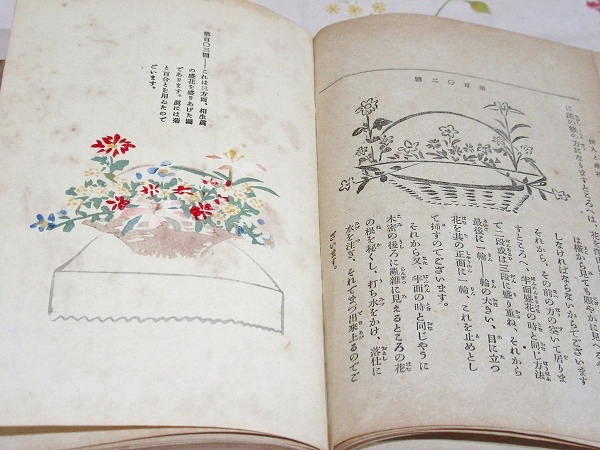 投入と盛花
第百〇二圖
は後の方になりますところへは、花を挿
は横から見ても賑やかに見へる
しなければならないからでございます
それから、その前の方の空いて居りま
すところへ、半面盛花の時と同じ方法
で二段或は三段に盛り重ね、それから
最後に一輪――輪の大きい、目に立つ
花を其の正面に一輪、これを止めとし
て挿すのでございます。
それから又、半面の時と同じやうに
木密の後ろに亂雜に見えるところの花
の根を秘くし、打ち水をかけ、落仕に
水を注ぎ、それでまづ出來上るのでご
ざいます。
第百〇三圖――これは三方面、相生眞
の盛花を盛りあげた圖
であります。眞には菊
と百合とを用ゐたので
ございます。